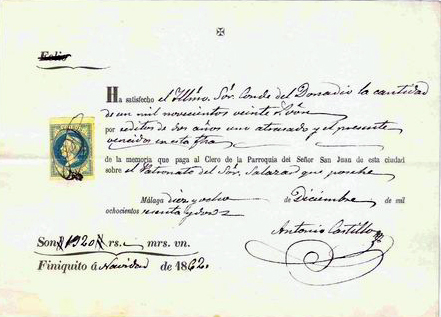 Folio
Ha satisfecho el Illmo. Sór. Conde del Donadio la cantidad
de un mil novecientos veinte rs. vón
por reditos de dos años uno atrasado y el presente
vencidos en esta fha
de la memoria que paga al Clero de la Parroquia del Señor San Juan de esta ciudad
sobre el Patronato del Sór. Salazar que posehe
Málaga diez y ocho de Diciembre de mil
ochocientos sesenta y dos
Antonio Castillo
Son 1920 rs. mrs. vn.
Finiquito á Navidad de 1862.